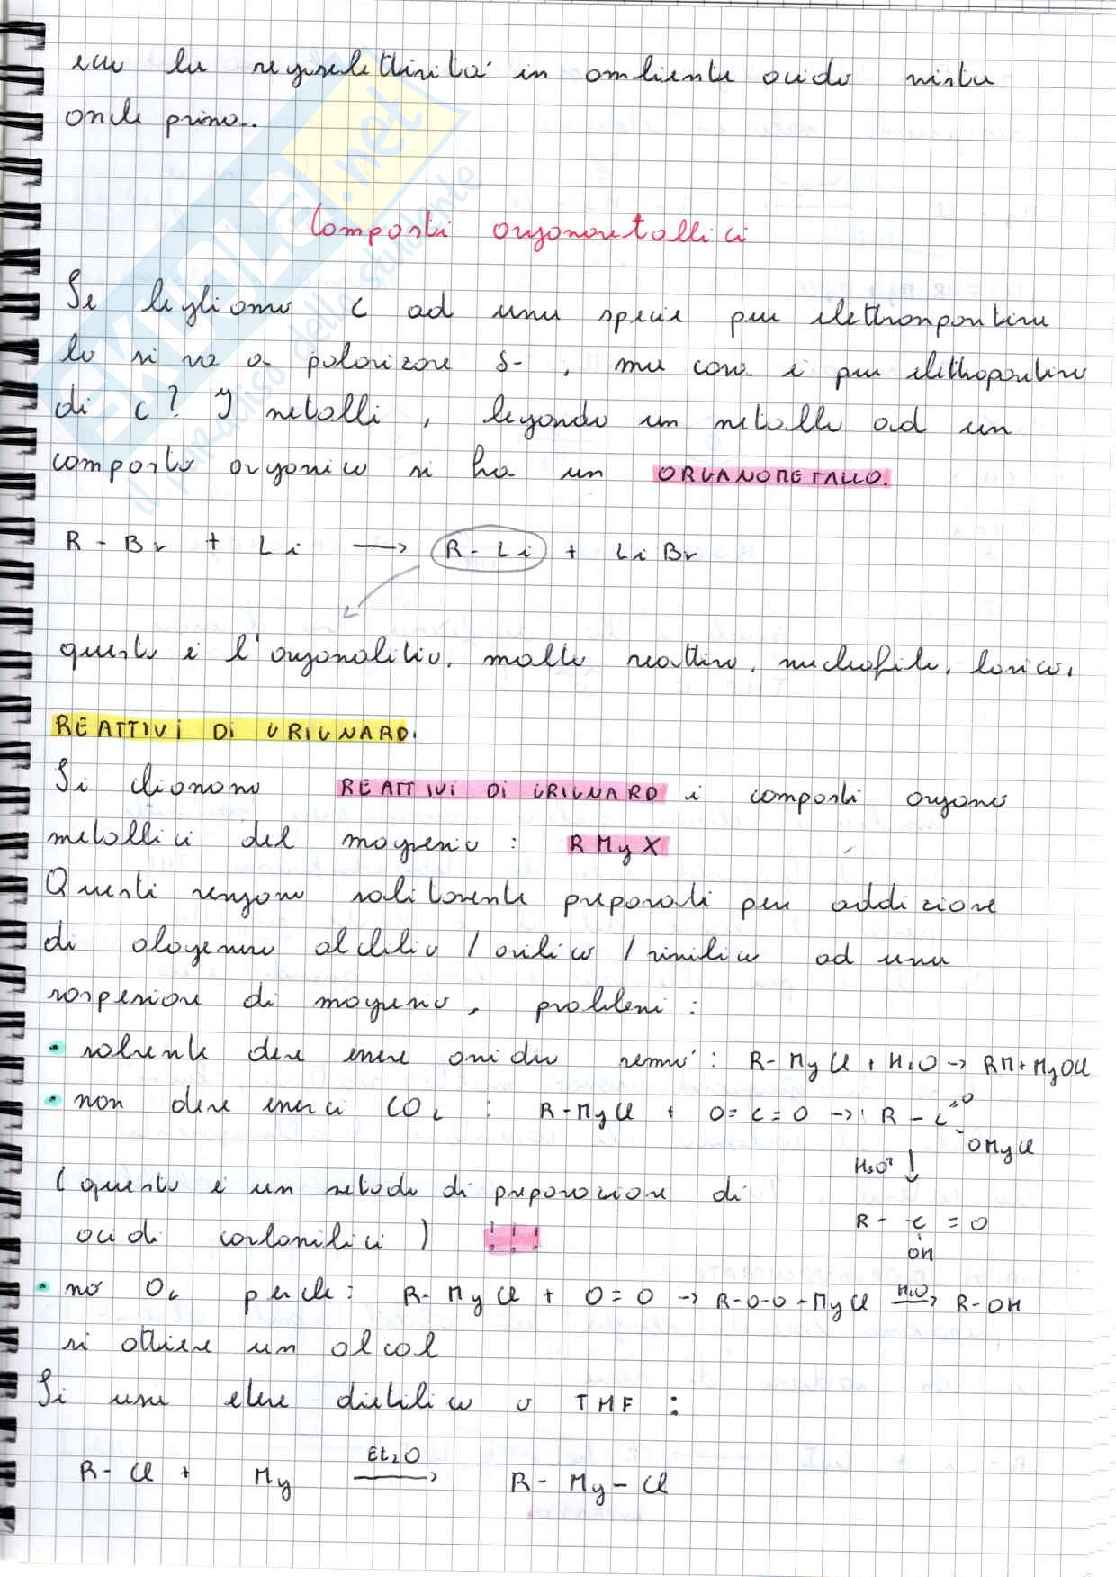 ecco la regioselettività in ambiente acido vista
anche prima..
Composti organometallici
Se leghiamo C ad una specie più elettronpositiva
lo si va a polarizzare δ- , ma cosa è più elettropositivo
di C? I metalli , legando un metallo ad un
composto organico si ha un ORGANOMETALLO.
R - Br + Li → R - Li + LiBr
questo è l'organolitio, molto reattivo, nucleofilo, basico.
REATTIVI DI GRIGNARD.
Si chiamano REATTIVI DI GRIGNARD i composti organo
metallici del magnesio : RMgX
Questi vengono solitamente preparati per addizione
di alogenuro alchilico / arilico / vinilico ad una
sospensione di magnesio, problemi :
• solvente deve essere anidro sennò : R-MgCl + H₂O → RH + MgOCl
• non deve esserci CO₂ : R-MgCl + O=C=O → R - C=O
OMgCl
H₃O⁺ ↓
(questo è un metodo di preparazione di
R - C = O
OH
acidi carbossilici) !!!
• no O₂ perché : R-MgCl + O=O → R-O-O-MgCl H₂O → R-OH
si ottiene un alcol
Si usa etere dietilico o THF :
R-Cl + Mg Et₂O → R-Mg-Cl
SKUOLA.net
il paradiso dello studente